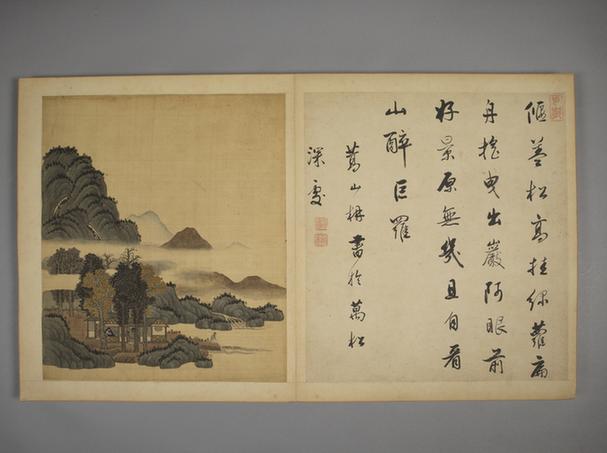 偃蓋松高挂綠蘿扁
舟搖曳出巖阿眼前
好景原無幾且自看
山醉叵羅
山書於萬松
深處